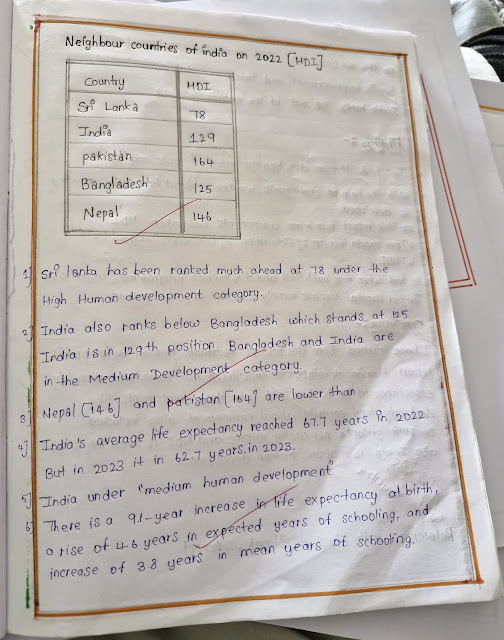 Neighbour countries of india on 2022 [HDI]
Country HDI
Sri Lanka 78
India 129
pakistan 164
Bangladesh 125
Nepal 146
1] Sri lanka has been ranked much ahead at 78 under the
High Human development category.
2] India also ranks below Bangladesh which stands at 125
India is in 129th position. Bangladesh and India are
in the Medium Development category.
3] Nepal [146] and pakistan [164] are lower than
4] India's average life expectancy reached 67.7 years in 2022
But in 2023 it in 62.7 years, in 2023.
5] India under "medium human development
6] There is a 9.1-year increase in life expectancy at birth,
a rise of 4.6 years in expected years of schooling, and
increase of 3.8 years in mean years of schooling.